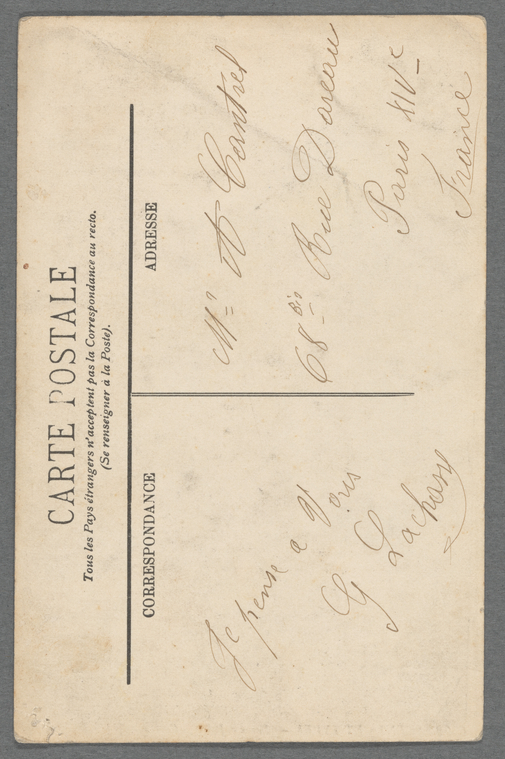 CARTE POSTALE
Tous les Pays étrangers n'acceptent pas la Correspondance au recto.
(Se renseigner à la Poste).
CORRESPONDANCE
Je pense a Vous
G Lachary
ADRESSE
Mr A Cantrel
68 bis Rue Dareau
Paris XIVe
France